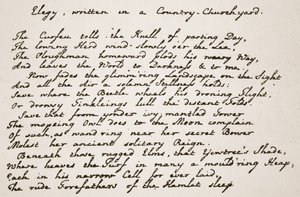 Elegy, written in a Country-Churchyard.
The Curfeu tolls the Knell of parting Day,
The lowing Herd wind slowly o'er the Lea,
The Ploughman homeward plods his weary Way,
And leaves the World to Darkness & to me.
Now fades the glim'ring Landscape on the Sight
And all the Air a solemn Stillness holds;
Save where the Beetle wheels his droning Flight,
Or drowsy Tinkleings lull the distant Folds.
Save that from yonder ivy-mantled Tower
The mopeing Owl does to the Moon complain
Of such, as wand'ring near her secret Bower
Molest her ancient solitary Reign.
Beneath those rugged Elms, that Yewtree's Shade,
Where heaves the Turf in many a mould'ring Heap,
Each in his narrow Cell for ever laid,
The rude Forefathers of the Hamlet sleep